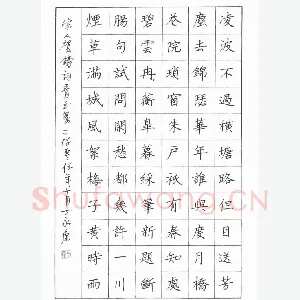 凌波不過橫塘路但目送芳
塵去錦瑟華年誰與度月橋
花院瑣窗朱戶祇有春知處
碧雲冉蘅皋暮綵筆新題斷
腸句試問閑愁都幾許一川
煙草滿城風絮梅子黃時雨
賀鑄詞青玉案
Shufawang.cn